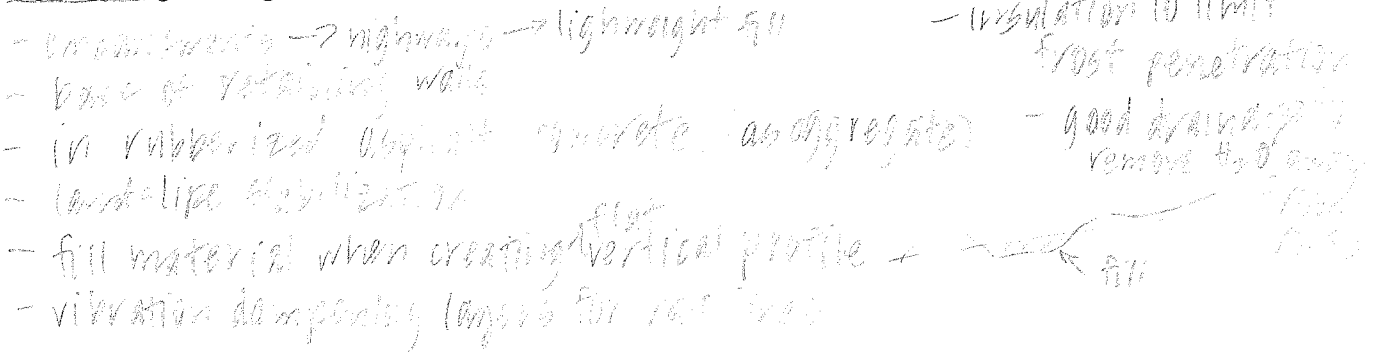 - embankments → highways → lighweight fill
- base of retaining walls
- in rubberized asphalt concrete (as aggregate)
- landslipe stabilization
- fill material when creating flat vertical profile
fill
- vibration dampening layers for rail
- insulation to limit
frost penetration
- good drainage
remove H2O away